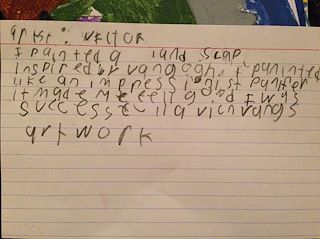 artist: VECTOR
I painted a land scap
Inspired br vangogh, I painted
like an impressionist painter
it made me feel glad I was
successful la vich rangs
artwork